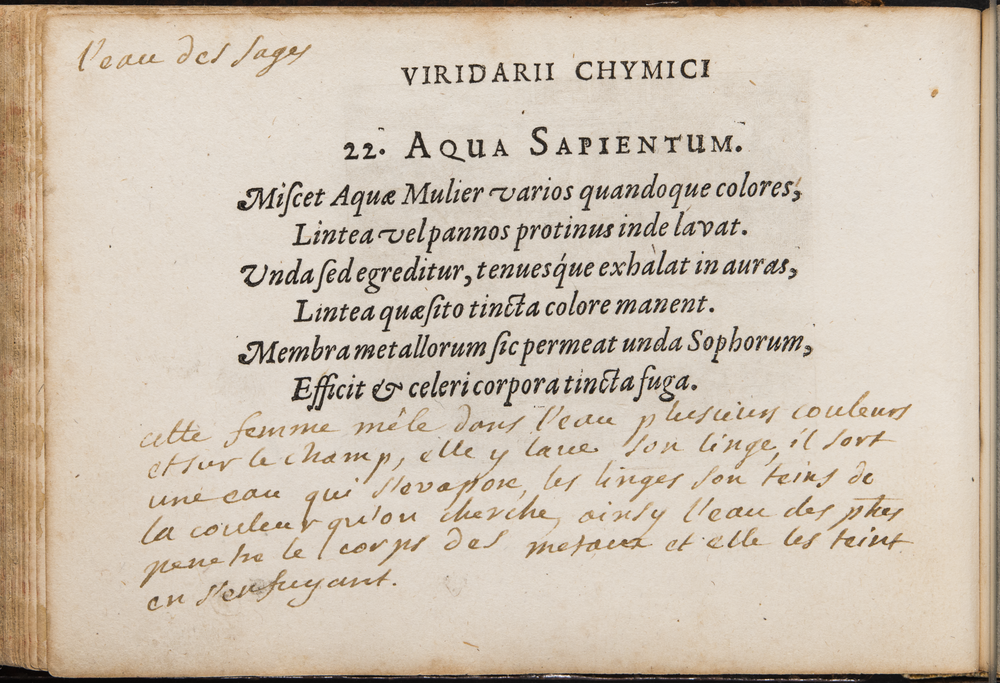 l'eau des sages
VIRIDARII CHYMICI
22. AQUA SAPIENTUM.
Miſcet Aquæ Mulier varios quandoque colores,
Lintea vel pannos protinus inde lavat.
Unda ſed egreditur, tenuesq́ue exhalat in auras,
Lintea quæſito tincta colore manent.
Membra metallorum ſic permeat unda Sophorum,
Efficit & celeri corpora tincta fuga.
cette femme mêle dans l'eau plusieurs couleurs
et sur le champ, elle y lave son linge, il sort
une eau qui s'evapore, les linges son teins de
la couleur qu'on cherche, ainsy l'eau des phes
penetre le corps des metaux et elle les teint
en s'enfuyant.